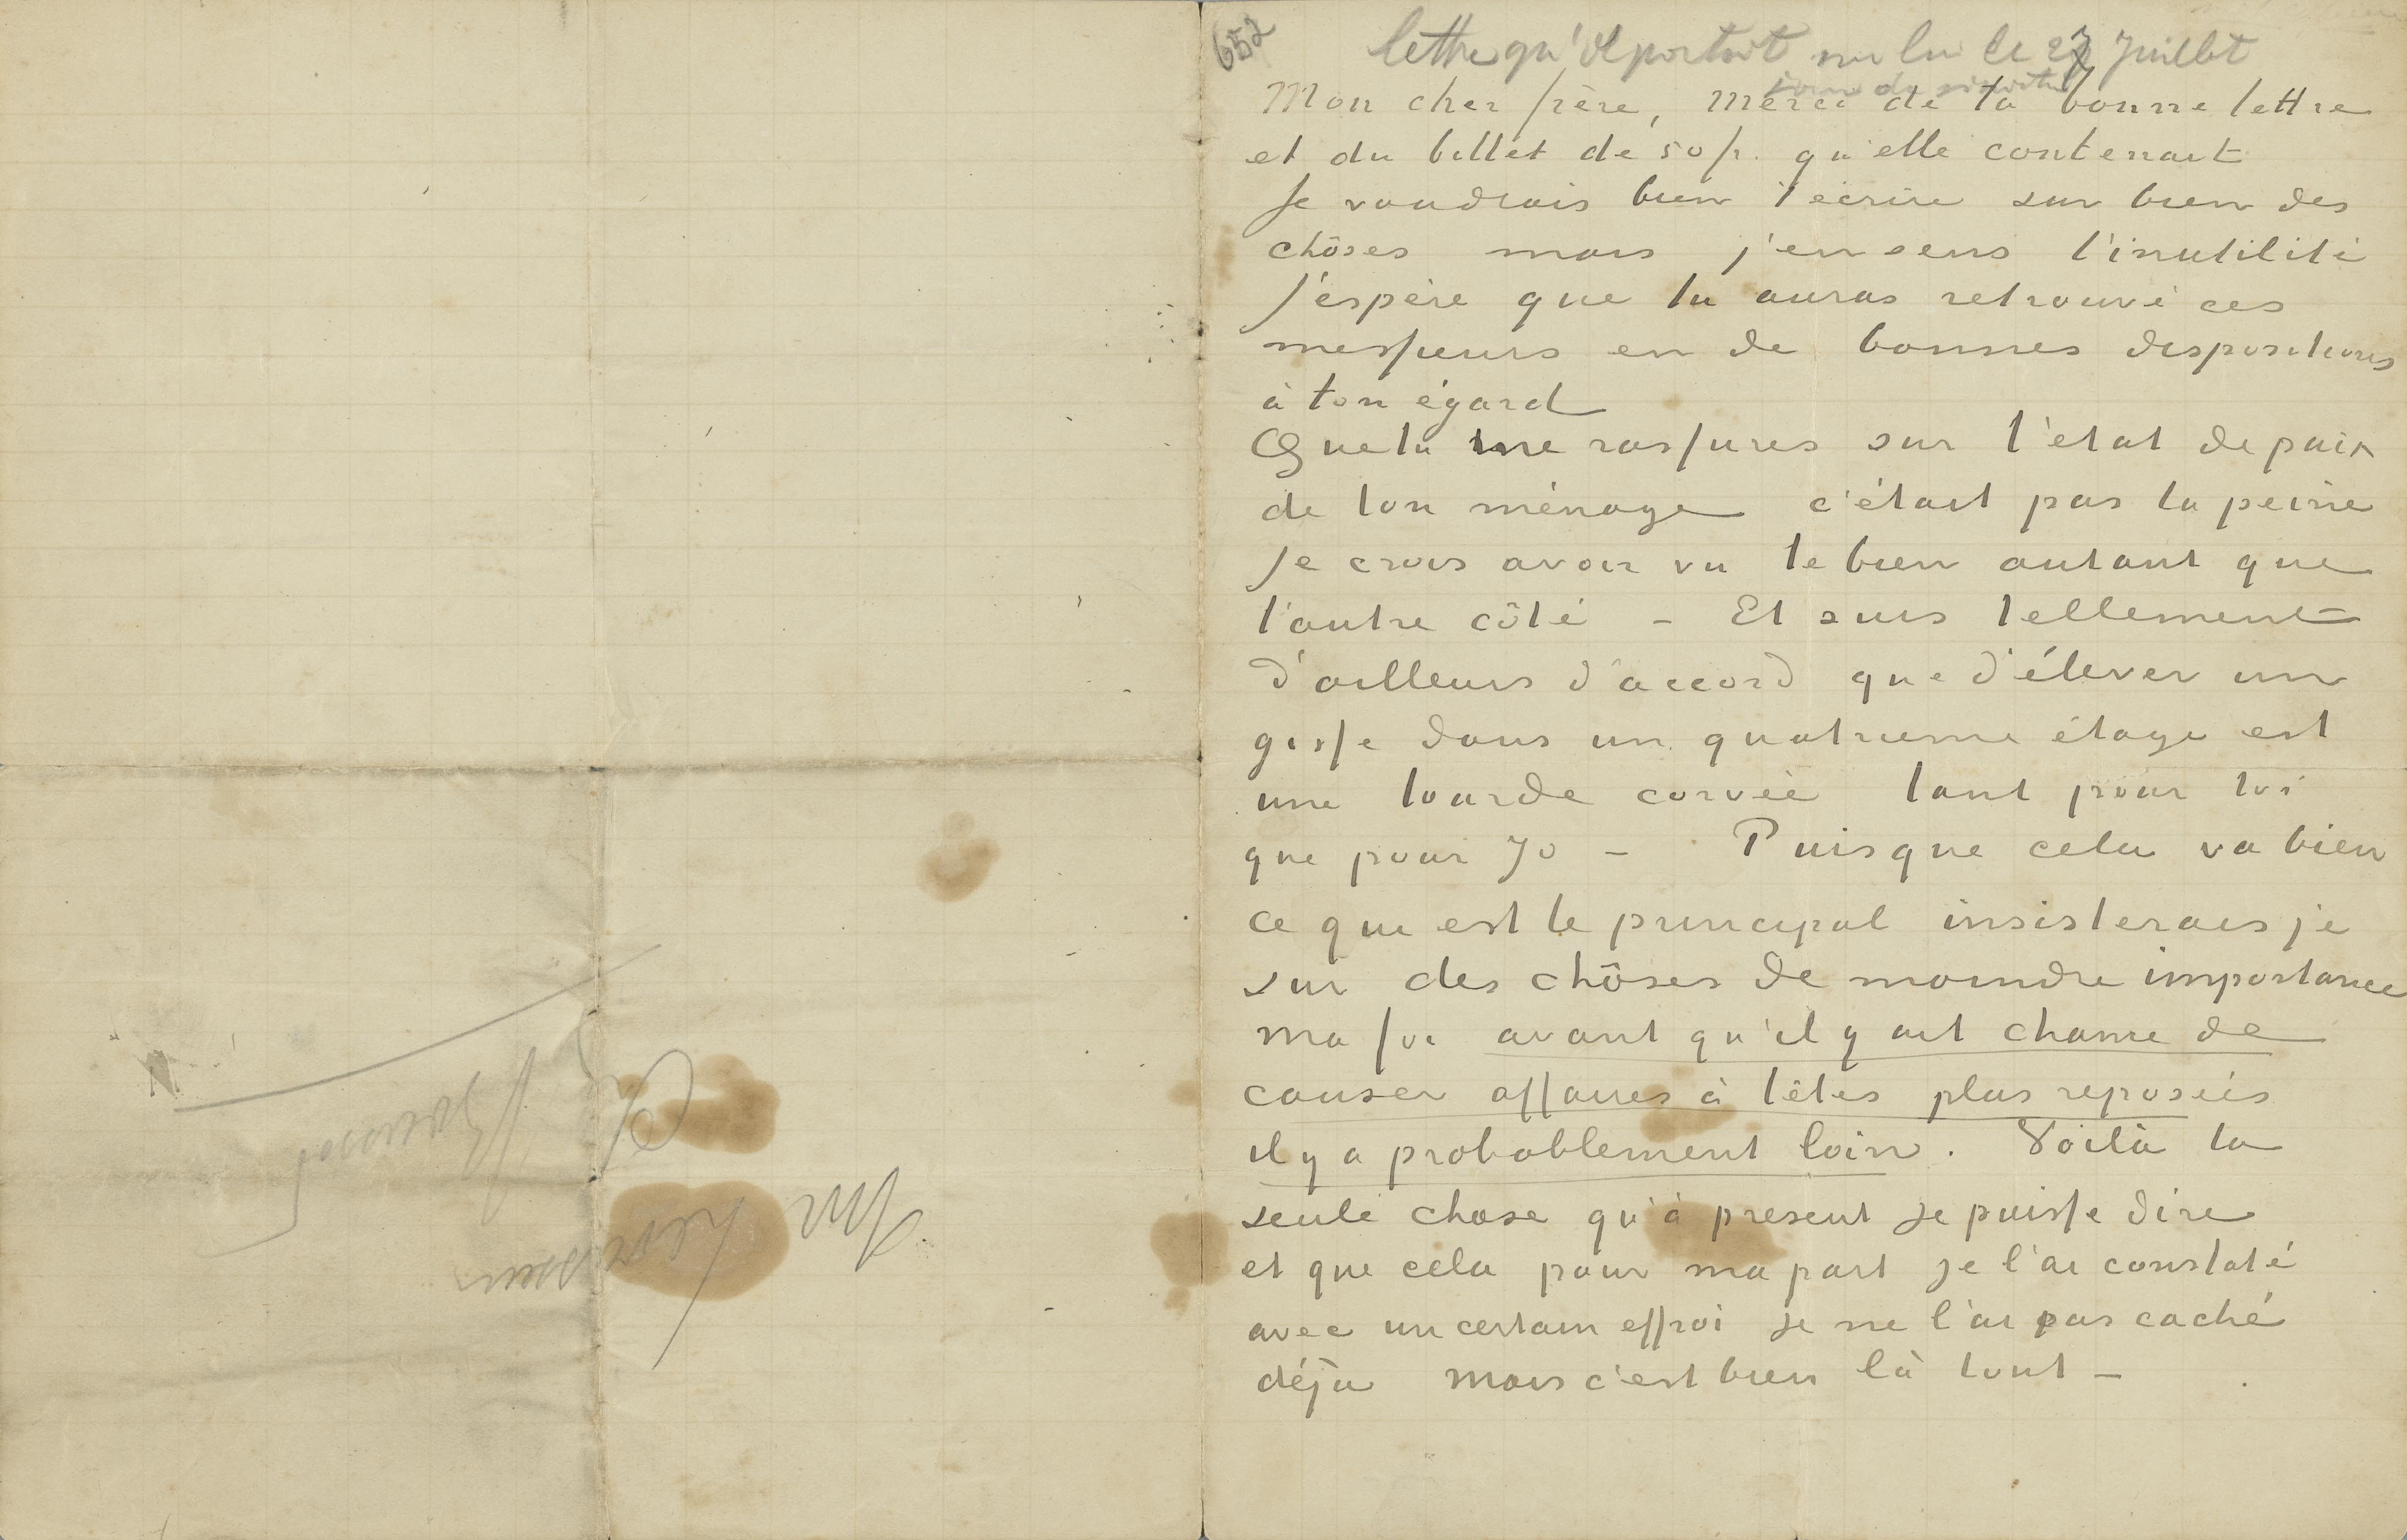 652
lettre qu'il portait sur lui le 27 Juillet
jour du
Mon cher frère, merci de ta bonne lettre
et du billet de 50 fr. qu'elle contenait
Je voudrais bien t'écrire sur bien des
chôses mais j'en sens l'inutilité
J'espère que tu auras retrouvé ces
messieurs en de bonnes dispositions
à ton égard
Que tu me rassures sur l'état de paix
de ton ménage c'était pas la peine
Je crois avoir vu le bien autant que
l'autre côté – Et suis tellement
d'ailleurs d'accord que d'élever un
gosse dans un quatrieme étage est
une lourde corvée tant pour toi
que pour Jo – Puisque cela va bien
ce qui est le principal insisterais je
sur des chôses de moindre importance
ma foi avant qu'il y ait chance de
causer affaires à têtes plus reposées
il y a probablement loin. Voilà la
seule chose qu'à present je puisse dire
et que cela pour ma part je l'ai constaté
avec un certain effroi je ne l'ai pas caché
déjà mais c'est bien là tout –